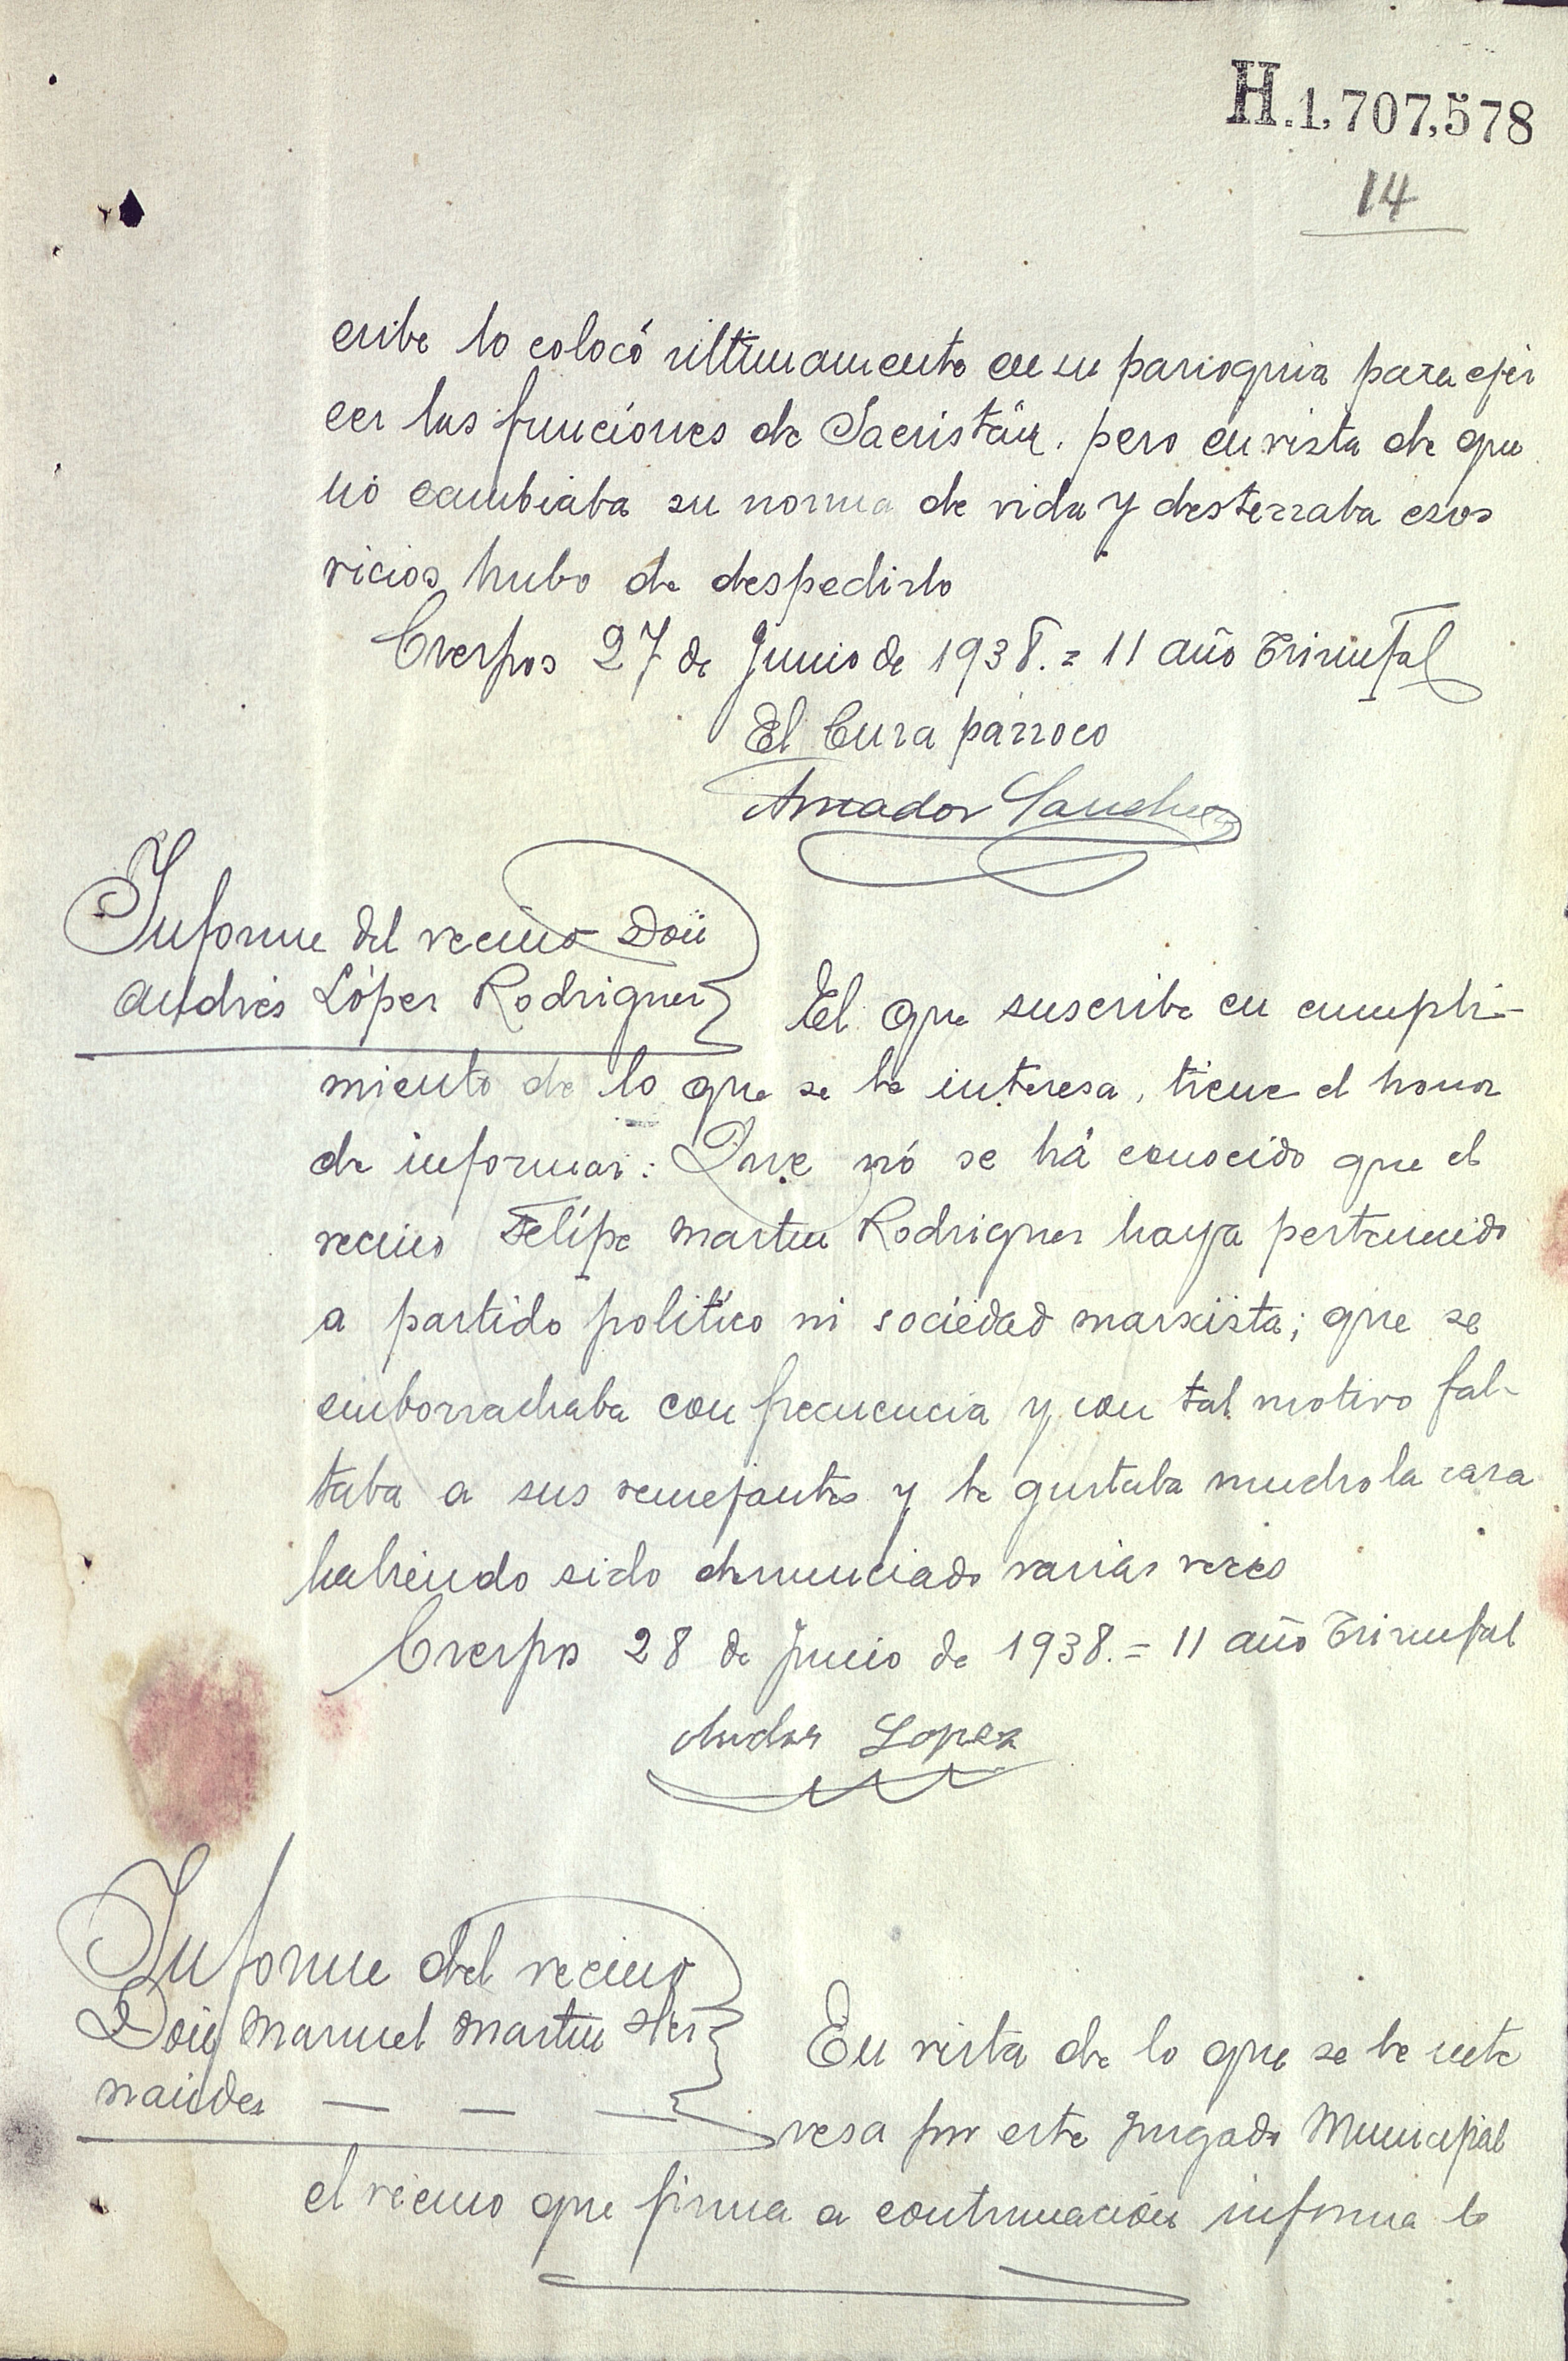 H.1,707,578
14
cribe lo colocó ultimamente en su parroquia para ejer
cer las funciones de Sacristán. pero en vista de que
nó cambiaba su norma de vida y desterraba esos
vicios hubo de despedirlo
Crespos 27 de Junio de 1938.= II año Triunfal
El Cura párroco
Amador Sanchez
Informe del vecino Don
Andrés López Rodriguez
El que suscribe en cumpli-
miento de lo que se le interesa, tiene el honor
de informar: Que nó se há conocido que el
vecino Felípe Martin Rodriguez haya pertenecido
a partido politíco ni sociedad marxista; que se
emborrachaba con frecuencia y con tal motivo fal-
taba a sus semejantes y le gustaba mucho la caza
habiendo sido denunciado varias veces
Crespos 28 de Junio de 1938.= II año Triunfal
Andres Lopez
Informe del vecino
Don Manuel Martin Her
nandez — — —
En vista de lo que se le inte
resa por este Juzgado Municipal
el vecino que firma a continuación informa lo